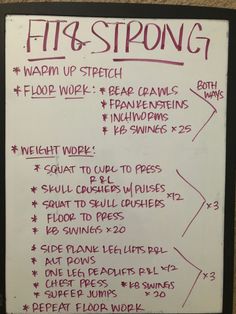 FIT & STRONG
* WARM UP STRETCH
* FLOOR WORK: * BEAR CRAWLS
* FRANKENSTEINS
* INCHWORMS
* KB SWINGS x 25
BOTH WAYS
* WEIGHT WORK:
* SQUAT TO CURL TO PRESS
R&L
* SKULL CRUSHERS W/ PULSES
* SQUAT TO SKULL CRUSHERS x12
* FLOOR TO PRESS
* KB SWINGS x20
x3
* SIDE PLANK LEG LIFTS R&L
* ALT ROWS
* ONE LEG DEADLIFTS R&L x12
* CHEST PRESS * KB SWINGS
* SURFER JUMPS x 20
x3
* REPEAT FLOOR WORK